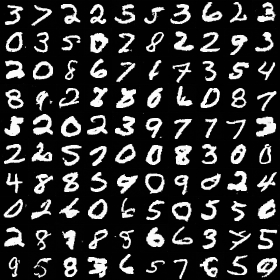 3 7 2 2 5 5 3 6 2 2
0 3 5 0 2 8 2 2 9 3
2 0 8 6 7 1 7 3 5 4
8 9 2 8 8 0 6 0 8 7
5 2 0 2 3 9 7 7 7 3
2 2 5 7 0 0 8 3 0 0
4 8 8 5 9 0 9 0 2 4
0 2 6 0 6 5 0 5 5 6
2 8 9 8 5 6 6 3 4 5
9 5 8 3 6 5 7 6 5 8